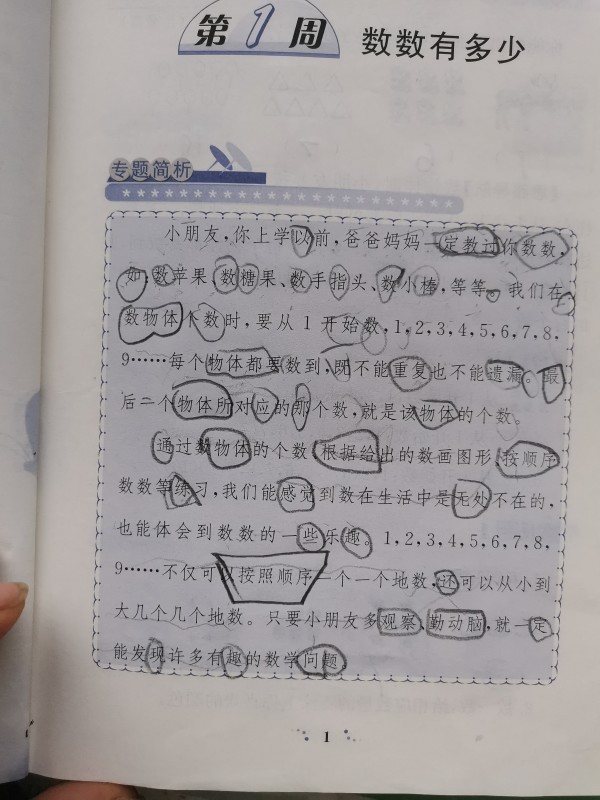 第1周 数数有多少
专题简析
小朋友,你上学以前,爸爸妈妈一定教过你数数,
如:数苹果、数糖果、数手指头、数小棒,等等。我们在
数物体个数时,要从1开始数,1,2,3,4,5,6,7,8,
9……每个物体都要数到,既不能重复也不能遗漏。最
后一个物体所对应的那个数,就是该物体的个数。
通过数物体的个数、根据给出的数画图形、按顺序
数数等练习,我们能感觉到数在生活中是无处不在的,
也能体会到数数的一些乐趣。1,2,3,4,5,6,7,8,
9……不仅可以按照顺序一个一个地数,还可以从小到
大几个几个地数。只要小朋友多观察、勤动脑,就一定
能发现许多有趣的数学问题
1